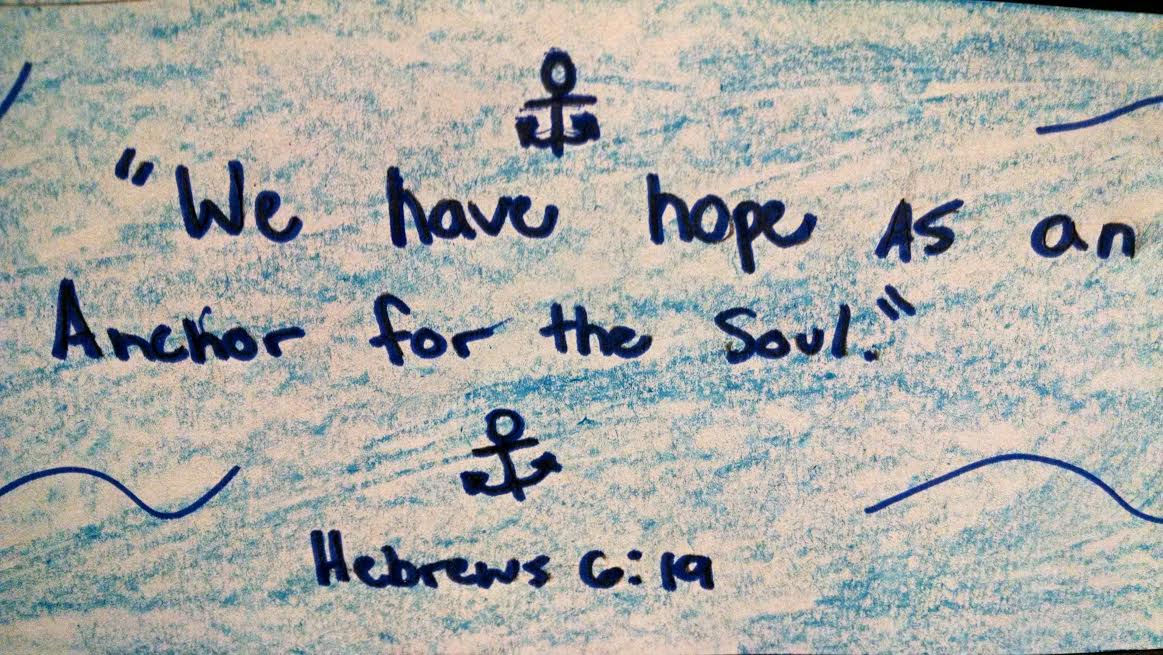 "We have hope As an
Anchor for the Soul."
Hebrews 6:19